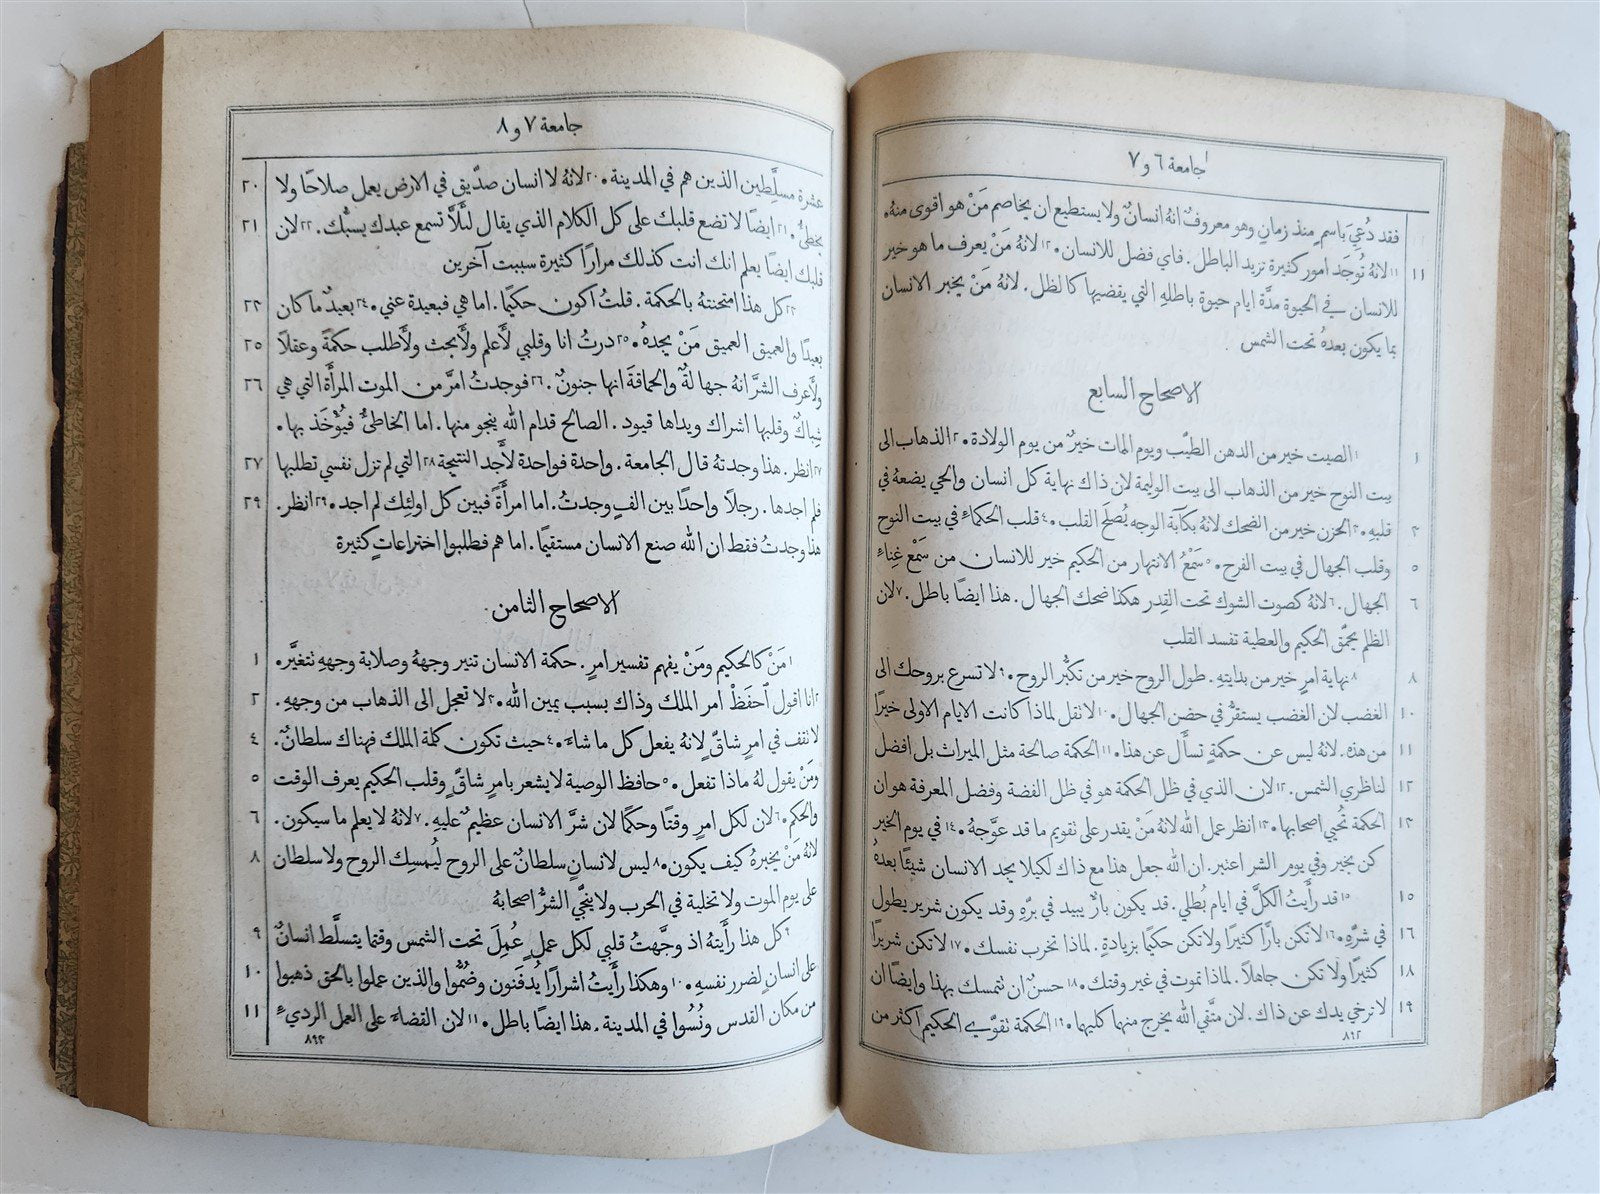 جامعة ٦ و ٧
فقد دُعِيَ بِاسمٍ منذ زمانٍ وهو معروفٌ انهُ انسانٌ ولا يستطيع ان يخاصم مَنْ هو اقوى منهُ.
١١ ١١لانهُ تُوجَد امور كثيرة تزيد الباطل. فاي فضل للانسان. ١٢لانهُ مَنْ يعرف ما هو خير
للانسان في الحيوة مدَّة ايام حيوة باطلهِ التي يقضيها كالظل. لانهُ مَنْ يخبر الانسان
بما يكون بعدهُ تحت الشمس
الاصحاح السابع
١ ١الصيت خير من الدهن الطيّب ويوم الممات خيرٌ من يوم الولادة. ٢الذهاب الى
بيت النوح خير من الذهاب الى بيت الوليمة لان ذاك نهاية كل انسان والحي يضعهُ في
٣ قلبهِ. ٣الحزن خير من الضحك لانهُ بكآبة الوجه يُصلَح القلب. ٤قلب الحكماءِ في بيت النوح
٥ وقلب الجهال في بيت الفرح. ٥سَمْعُ الانتهار من الحكيم خير للانسان من سَمْع غِناءِ
٦ الجهال. ٦لانهُ كصوت الشوك تحت القِدر هكذا ضحك الجهال. هذا ايضًا باطل. ٧لان
الظلم يحمّق الحكيم والعطية تفسد القلب
٨ ٨نهاية امرٍ خير من بدايتهِ. طول الروح خير من تكبُّر الروح. ٩لا تسرع بروحك الى
١٠ الغضب لان الغضب يستقرُّ في حضن الجهال. ١٠لا تقل لماذا كانت الايام الاولى خيرًا
١١ من هذه. لانهُ ليس عن حكمةٍ تسأَل عن هذا. ١١الحكمة صالحة مثل الميراث بل افضل
١٢ لناظري الشمس. ١٢لان الذي في ظل الحكمة هو في ظل الفضة وفضل المعرفة هو ان
١٣ الحكمة تُحيي اصحابها. ١٣انظر عمل الله لانهُ مَنْ يقدر على تقويم ما قد عوَّجهُ. ١٤في يوم الخير
كن بخير وفي يوم الشر اعتبر. ان الله جعل هذا مع ذاك لكيلا يجد الانسان شيئًا بعدهُ
١٥ ١٥قد رأَيتُ الكلَّ في ايام بُطلي. قد يكون بارٌّ يبيد في برّهِ وقد يكون شرير يطول
١٦ في شرّهِ. ١٦لا تكن بارًّا كثيرًا ولا تكن حكيمًا بزيادةٍ. لماذا تخرب نفسك. ١٧لا تكن شريرًا
١٨ كثيرًا ولا تكن جاهلاً. لماذا تموت في غير وقتك. ١٨حسنٌ ان تتمسك بهذا وايضًا ان
١٩ لا ترخي يدك عن ذاك. لان متَّقي الله يخرج منهما كليهما. ١٩الحكمة تقوّي الحكيم اكثر من
٨٩٢
جامعة ٧ و ٨
٢٠ عشرة مسلَّطين الذين هم في المدينة. ٢٠لانهُ لا انسان صدّيق في الارض يعمل صلاحًا ولا
٢١ يخطئُ. ٢١ايضًا لا تضع قلبك على كل الكلام الذي يقال لئَلَّا تسمع عبدك يسبُّك. ٢٢لان
قلبك ايضًا يعلم انك انت كذلك مرارًا كثيرة سببت آخرين
٢٣ ٢٣كل هذا امتحنتهُ بالحكمة. قلتُ اكون حكيمًا. اما هي فبعيدة عني. ٢٤بعيدٌ ما كان
٢٥ بعيدًا والعميق العميق مَنْ يجدهُ. ٢٥درتُ انا وقلبي لأَعلم ولأَبحث ولأَطلب حكمةً وعقلاً
٢٦ ولأَعرف الشرَّ انهُ جهالةٌ والحماقةَ انها جنونٌ. ٢٦فوجدتُ امرَّ من الموت المرأَة التي هي
شِباكٌ وقلبها اشراك ويداها قيود. الصالح قدام الله ينجو منها. اما الخاطئُ فيُؤْخَذ بها.
٢٧ ٢٧انظر. هذا وجدتهُ قال الجامعة. واحدة فواحدة لأَجد النتيجة ٢٨التي لم تزل نفسي تطلبها
٢٩ فلم اجدها. رجلاً واحدًا بين الفٍ وجدتُ. اما امرأَةً فبين كل اولئِك لم اجد. ٢٩انظر.
هذا وجدتُ فقط ان الله صنع الانسان مستقيمًا. اما هم فطلبوا اختراعاتٍ كثيرة
الاصحاح الثامن
١ ١مَنْ كالحكيم ومَنْ يفهم تفسير امرٍ. حكمة الانسان تنير وجههُ وصلابة وجههِ تتغيَّر.
٢ ٢انا اقول ٱحفَظْ امر الملك وذاك بسبب يمين الله. ٣لا تعجل الى الذهاب من وجههِ.
٤ لا تقف في امرٍ شاقٍّ لانهُ يفعل كل ما شاءَ. ٤حيث تكون كلمة الملك فهناك سلطانٌ.
٥ ومَنْ يقول لهُ ماذا تفعل. ٥حافظ الوصية لا يشعر بامرٍ شاقٍّ وقلب الحكيم يعرف الوقت
٦ والحكم. ٦لان لكل امرٍ وقتًا وحكمًا لان شرَّ الانسان عظيمٌ عليهِ. ٧لانهُ لا يعلم ما سيكون.
٨ لانهُ مَنْ يخبرهُ كيف يكون. ٨ليس لانسانٍ سلطانٌ على الروح ليُمسِك الروح ولا سلطان
على يوم الموت ولا تخلية في الحرب ولا ينجّي الشرُّ اصحابهُ
٩ ٩كل هذا رأَيتهُ اذ وجَّهتُ قلبي لكل عملٍ عُمِلَ تحت الشمس وقتما يتسلَّط انسانٌ
١٠ على انسانٍ لضرر نفسهِ. ١٠وهكذا رأَيتُ اشرارًا يُدفَنون وضُمُّوا والذين عملوا بالحق ذهبوا
١١ من مكان القدس ونُسُوا في المدينة. هذا ايضًا باطل. ١١لان القضاءَ على العمل الرديءِ
٨٩٣